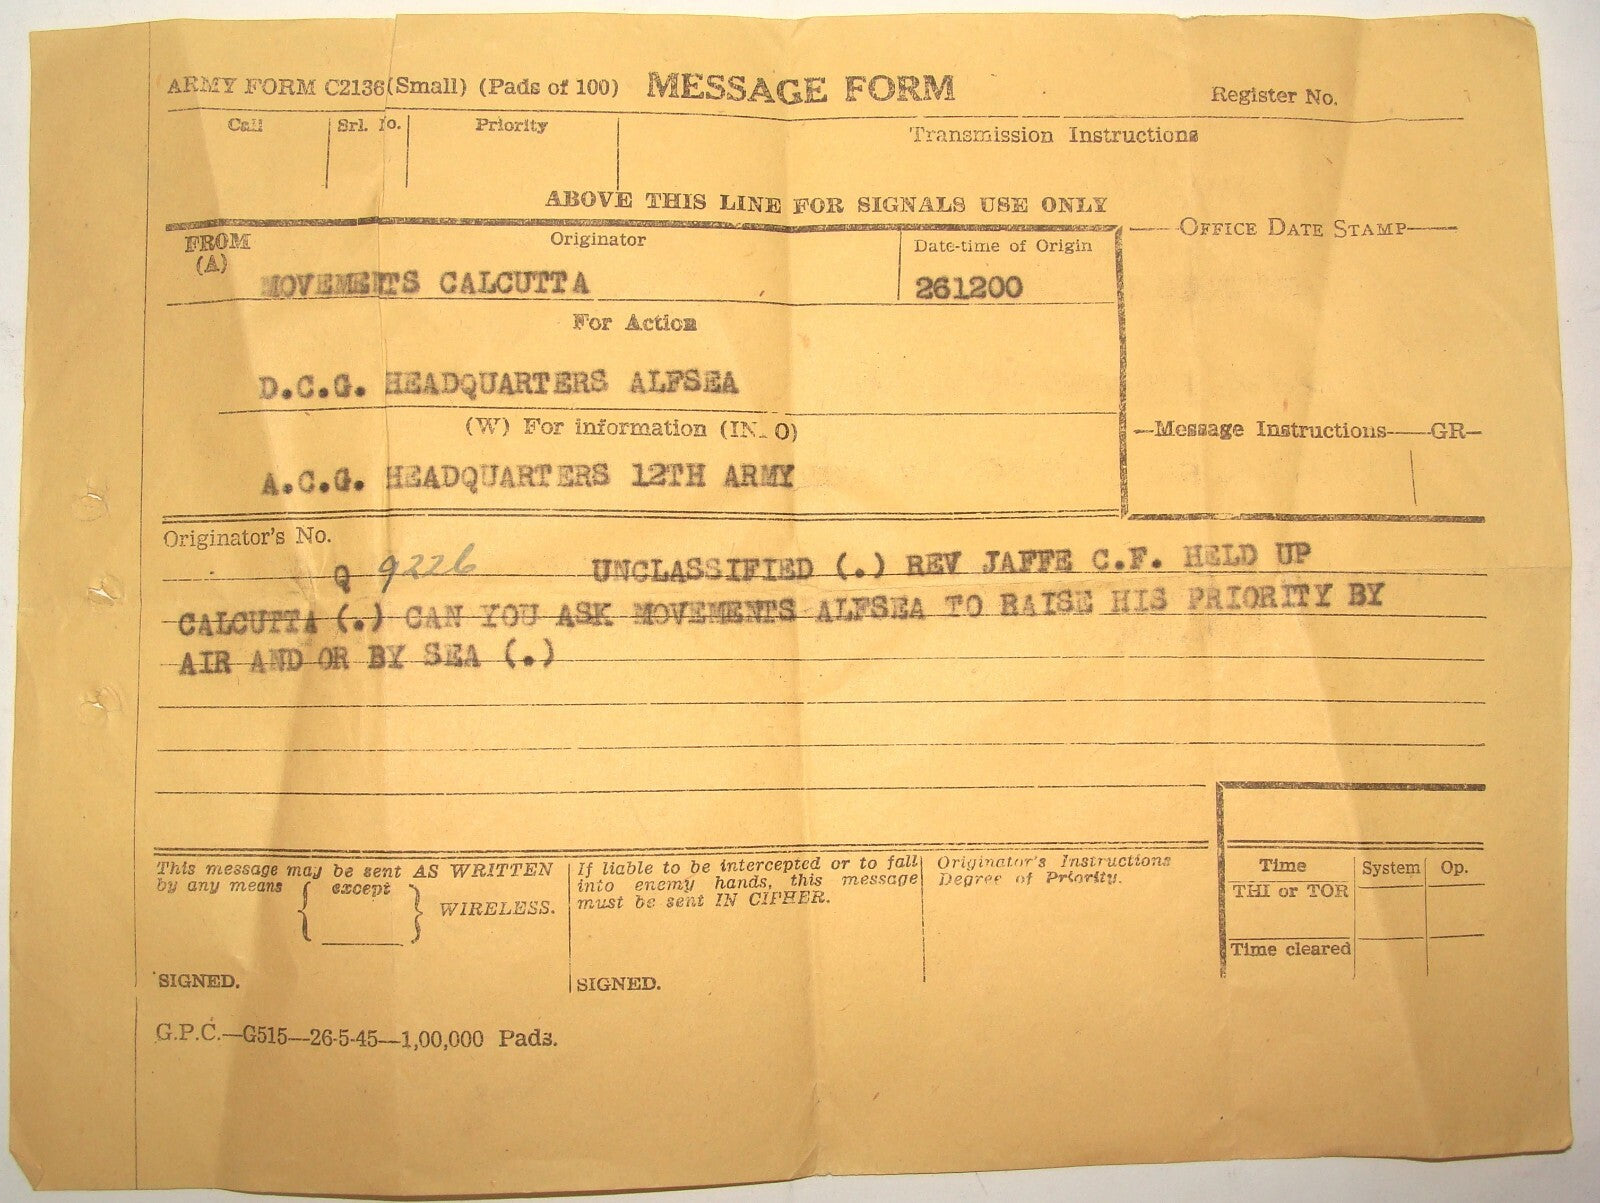 ARMY FORM C2136 (Small) (Pads of 100) MESSAGE FORM Register No.
Call Srl. No. Priority Transmission Instructions
ABOVE THIS LINE FOR SIGNALS USE ONLY
FROM (A) Originator Date-time of Origin OFFICE DATE STAMP
MOVEMENTS CALCUTTA 261200
For Action
D.C.G. HEADQUARTERS ALFSEA
(W) For information (INFO) Message Instructions GR
A.C.G. HEADQUARTERS 12TH ARMY
Originator's No.
Q 9226 UNCLASSIFIED (.) REV JAFFE C.F. HELD UP
CALCUTTA (.) CAN YOU ASK MOVEMENTS ALFSEA TO RAISE HIS PRIORITY BY
AIR AND OR BY SEA (.)
This message may be sent AS WRITTEN
by any means { except } WIRELESS.
SIGNED.
If liable to be intercepted or to fall
into enemy hands, this message
must be sent IN CIPHER.
SIGNED.
Originator's Instructions
Degree of Priority.
Time System Op.
THI or TOR
Time cleared
G.P.C.—G515—26-5-45—1,00,000 Pads.